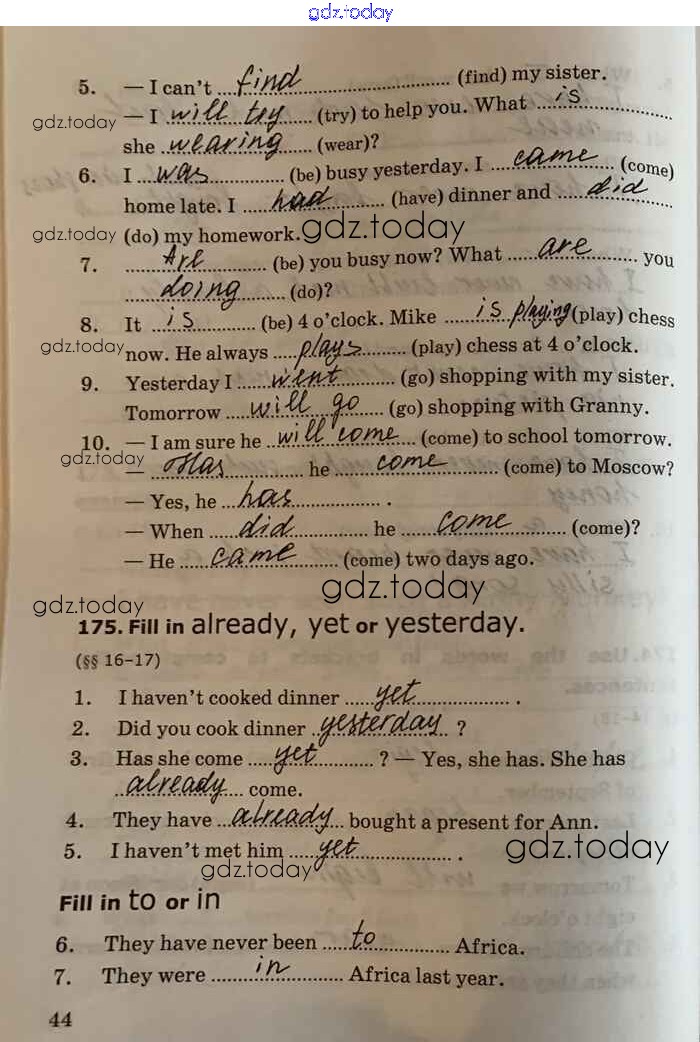 gdz.today
5. — I can't find (find) my sister.
gdz.today — I will try (try) to help you. What is
she wearing (wear)?
6. I was (be) busy yesterday. I came (come)
home late. I had (have) dinner and did
gdz.today (do) my homework. gdz.today
7. Are (be) you busy now? What are you
doing (do)?
8. It is (be) 4 o'clock. Mike is playing (play) chess
gdz.today now. He always plays (play) chess at 4 o'clock.
9. Yesterday I went (go) shopping with my sister.
Tomorrow will go (go) shopping with Granny.
10. — I am sure he will come (come) to school tomorrow.
gdz.today
— Has he come (come) to Moscow?
— Yes, he has.
— When did he come (come)?
— He came (come) two days ago.
gdz.today gdz.today
175. Fill in already, yet or yesterday.
(§§ 16–17)
1. I haven't cooked dinner yet.
2. Did you cook dinner yesterday?
3. Has she come yet? — Yes, she has. She has
already come.
4. They have already bought a present for Ann.
5. I haven't met him yet. gdz.today
gdz.today
Fill in to or in
6. They have never been to Africa.
7. They were in Africa last year.
44